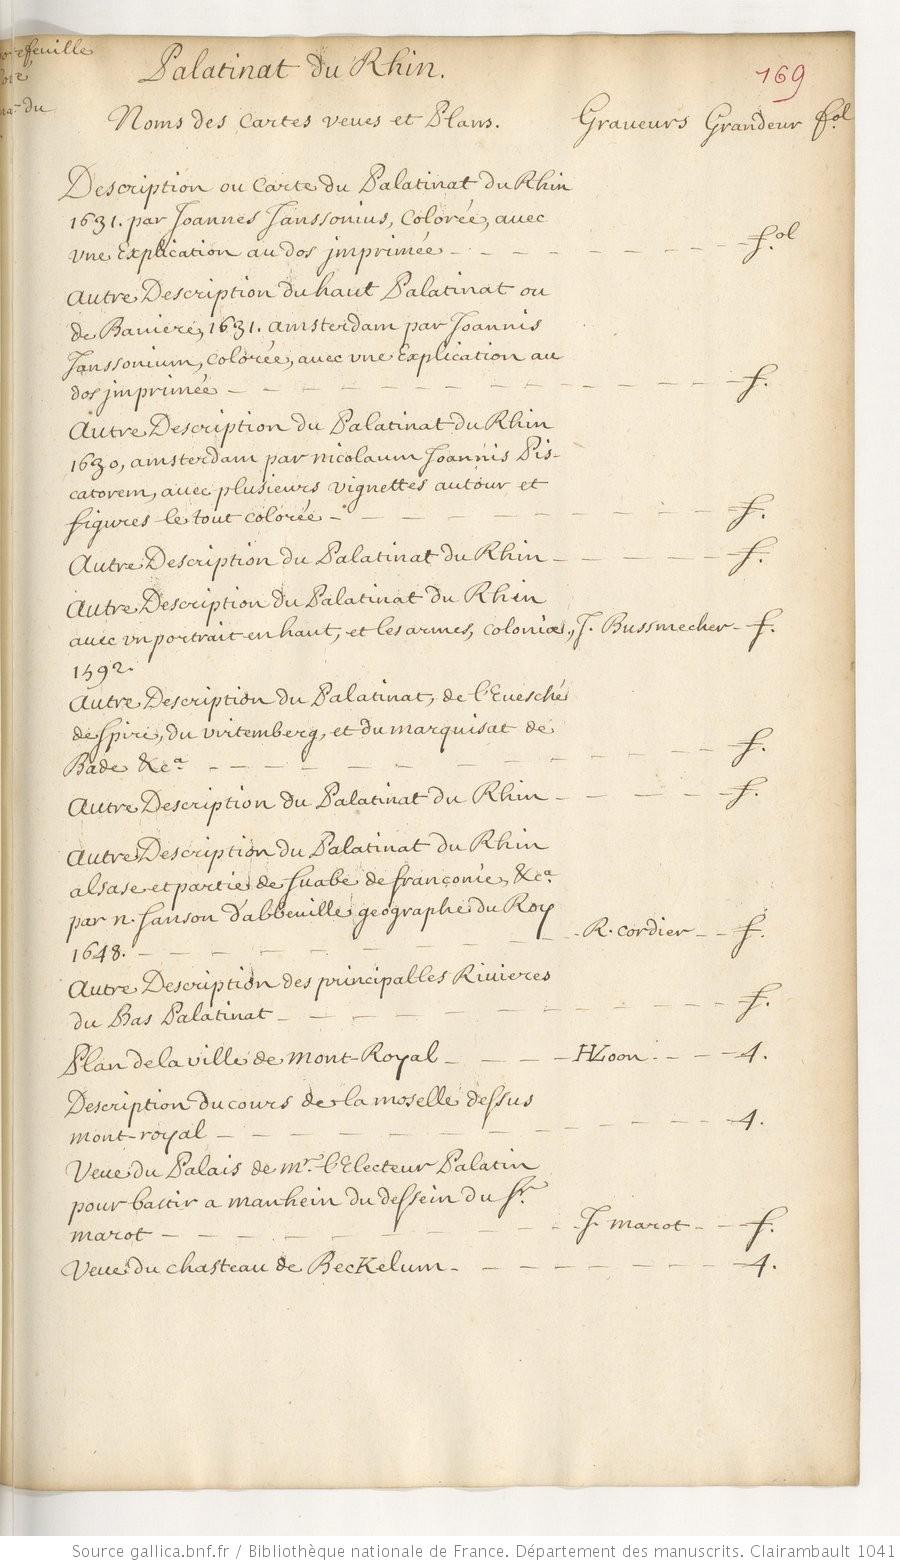 Palatinat du Rhin.
169
Noms des Cartes veues et Plans. Graueurs Grandeur fol
Description ou Carte du Palatinat du Rhin
1631. par Joannes Janssonius, Colorée, auec
vne Explication au dos jmprimée - - - - - - - f.ol
Autre Description du haut Palatinat ou
de Bauiere, 1631. amsterdam par Joannis
Janssonium, colorée, auec vne Explication au
dos jmprimée - - - - - - - f.
Autre Description du Palatinat du Rhin
1630, amsterdam par nicolaum Joannis Pis-
catorem, auec plusieurs vignettes autour et
figures le tout colorée - - - - - - - f.
Autre Description du Palatinat du Rhin - - - - - f.
Autre Description du Palatinat du Rhin
auec vn portrait en haut, et les armes, coloniæ, J. Bussmecher - f.
1592.
Autre Description du Palatinat, de l'Euesché
de Spire, du virtemberg, et du marquisat de
Bade &c.a - - - - - - - f.
Autre Description du Palatinat du Rhin - - - - f.
Autre Description du Palatinat du Rhin
alsase et partie de Suabe de françonie, &c.a
par n. Sanson d'abbeuille geographe du Roy
1648. - - - - - - - R. Cordier - - f.
Autre Description des principalles Riuieres
du Bas Palatinat - - - - - - - f.
Plan de la ville de Mont-Royal - - - - HLoon. - - - 4.
Description du cours de la moselle dessus
mont-royal - - - - - - - 4.
Veue du Palais de mr. l'Electeur Palatin
pour bastir a manhein du dessein du Sr.
marot - - - - - - - J. marot - - f.
Veue du chasteau de Beckelum - - - - - - - 4.
Source gallica.bnf.fr / Bibliothèque nationale de France. Département des manuscrits. Clairambault 1041